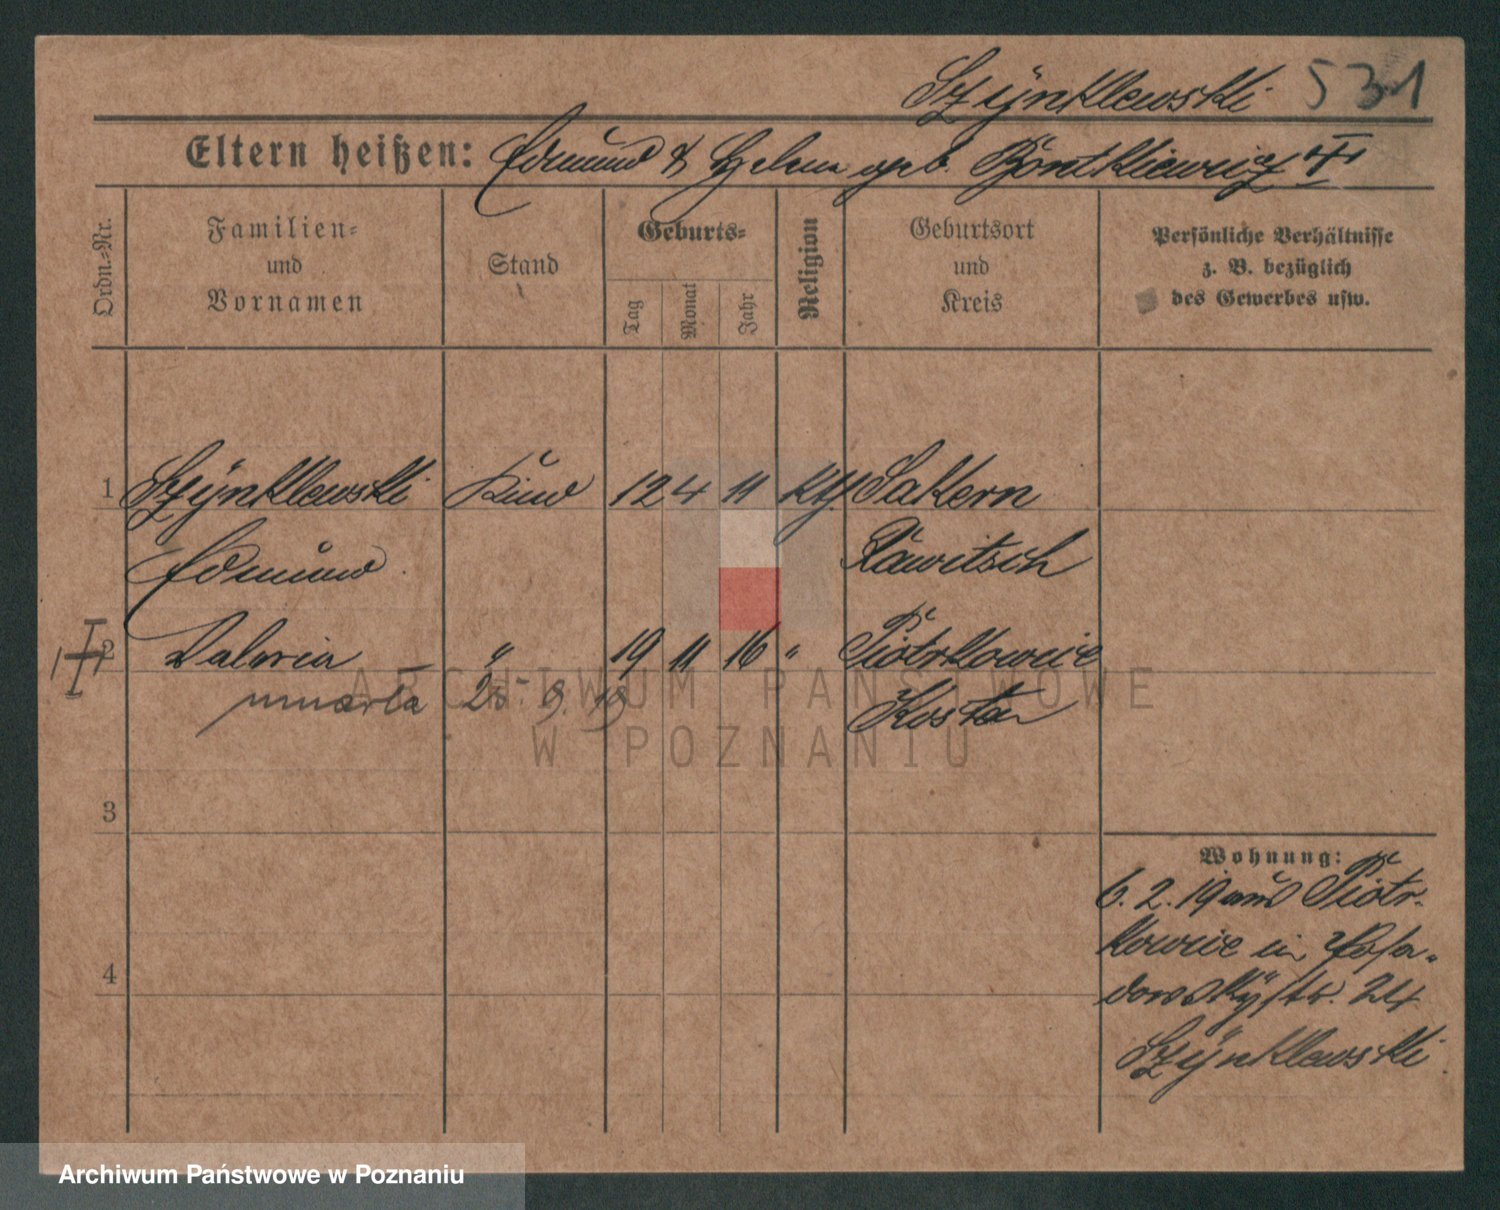 Szÿnklewski 531
Eltern heißen: Edmund & Helena geb. Piontkiewicz
Ordn.-Nr.
Familien-
und
Vornamen
Stand
Geburts-
Tag
Monat
Jahr
Religion
Geburtsort
und
Kreis
Persönliche Verhältnisse
z. B. bezüglich
des Gewerbes usw.
1 Szÿnklewski Kind 12 4 11 kth. Sakern
Edmund Rawitsch
2 Valeria " 19 11 16 " Piotrkowice
umarła 25 - 9. 19 Kosten
3
4
Wohnung:
6. 2. 19 aus Piotr-
kowice in Posa-
dowskÿstr. 24
Szÿnklewski.
ARCHIWUM PAŃSTWOWE
W POZNANIU
Archiwum Państwowe w Poznaniu